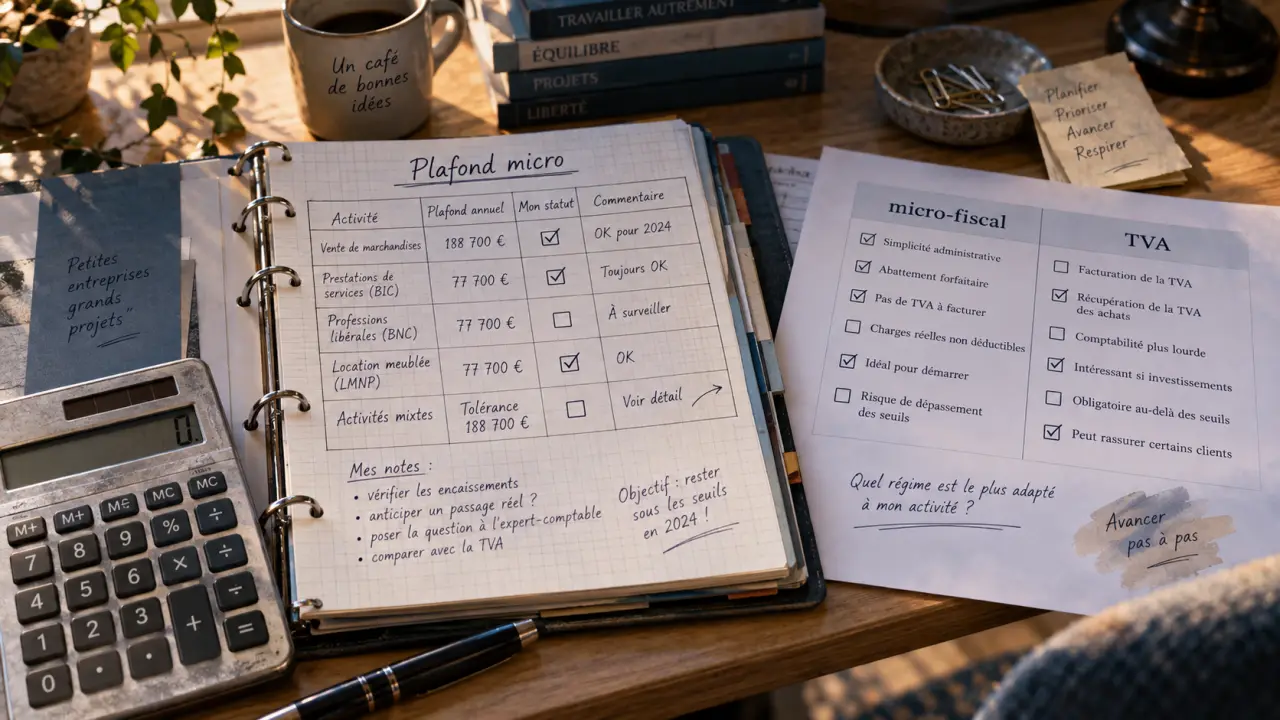 Un café
de bonnes
idées
TRAVAILLER AUTREMENT
ÉQUILIBRE
PROJETS
LIBERTÉ
Planifier
Prioriser
Avancer
Respirer
Petites
entreprises
grands
projets"
Plafond micro
Activité Plafond annuel Mon statut Commentaire
Vente de marchandises 188 700 € ☑ OK pour 2024
Prestations de
services (BIC) 77 700 € ☑ Toujours OK
Professions
libérales (BNC) 77 700 € ☐ À surveiller
Location meublée
(LMNP) 77 700 € ☑ OK
Activités mixtes Tolérance
188 700 € ☐ Voir détail →
Mes notes :
• vérifier les encaissements
• anticiper un passage réel ?
• poser la question à l'expert-comptable
• comparer avec la TVA
Objectif : rester
sous les seuils
en 2024 !
micro-fiscal
☑ Simplicité administrative
☑ Abattement forfaitaire
☑ Pas de TVA à facturer
☐ Charges réelles non déductibles
☑ Idéal pour démarrer
☐ Risque de dépassement
des seuils
TVA
☐ Facturation de la TVA
☑ Récupération de la TVA
des achats
☐ Comptabilité plus lourde
☑ Intéressant si investissements
☐ Obligatoire au-delà des seuils
☑ Peut rassurer certains clients
Quel régime est le plus adapté
à mon activité ?
Avancer
pas à pas
0.
M+ M+ M± MC MC
7 8 9 % ÷
4 5 6 × ÷
1 2 3 + ÷
0 · · =